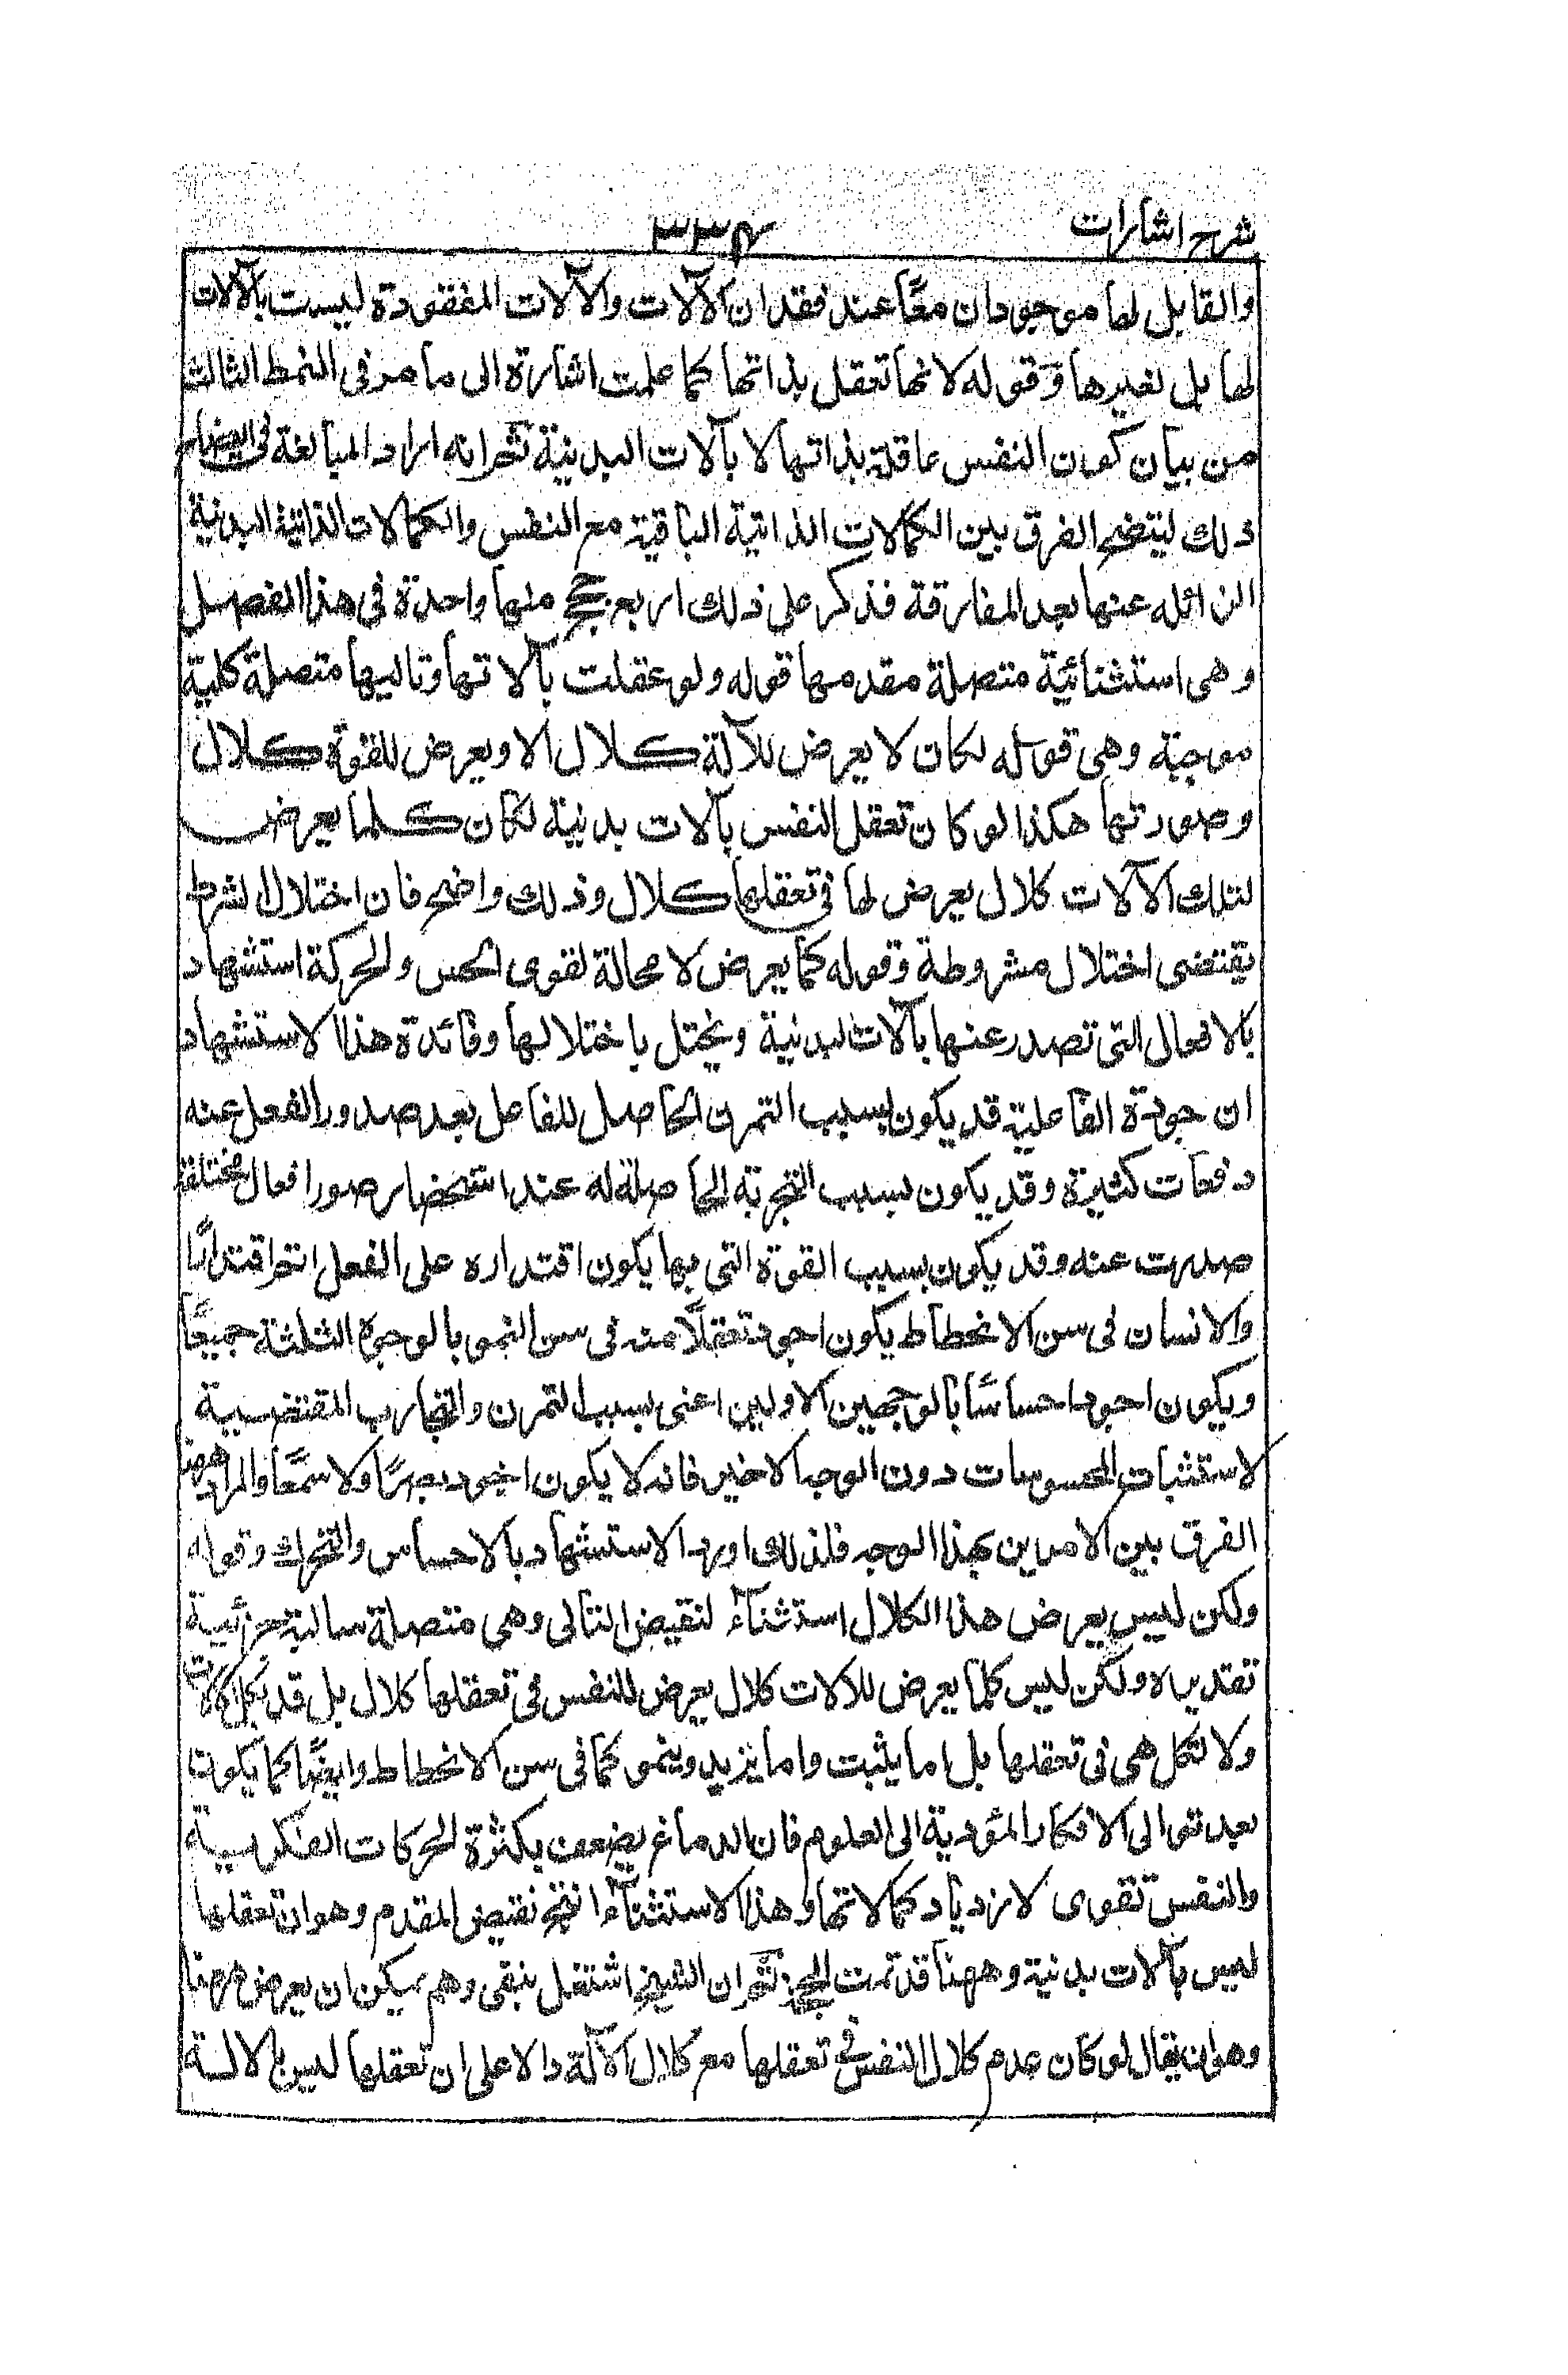 شرح اشارات
٣٣٤
والقابل لها موجودان معًا عند فقدان الآلات والآلات المفقودة ليست بآلات
لها بل لغيرها وقوله لانها تعقل بذاتها كما علمت اشارة الى ما مر فى النمط الثالث
من بيان كون النفس عاقلة بذاتها لا بآلات البدنية ثم انه اراد المبالغة فى ايضاح
ذلك ليتضح الفرق بين الكمالات الذاتية الباقية مع النفس والكمالات الذاتية البدنية
الزائله عنها بعد المفارقة فذكر على ذلك اربع حجج منها واحدة فى هذا الفصل
وهى استثنائية متصلة مقدمها قوله ولو عقلت بآلاتها وتاليها متصلة كلية
موجبة وهى قوله لكان لا يعرض للآلة كلال الا ويعرض للقوة كلال
وصورتها هكذا لو كان تعقل النفس بآلات بدنية لكان كلما يعرض
لتلك الآلات كلال يعرض لها فى تعقلها كلال وذلك واضح فان اختلال الشرط
يقتضى اختلال مشروطة وقوله كما يعرض لا محالة لقوى الحس والحركة استشهاد
بالافعال التى تصدر عنها بآلات البدنية ويختل باختلالها وفائدة هذا الاستشهاد
ان جودة الفاعلية قد يكون بسبب التمرن الحاصل للفاعل بعد صدور الفعل عنه
دفعات كثيرة وقد يكون بسبب التجربة الحاصلة له عند استحضار صور افعال مختلفة
صدرت عنه وقد يكون بسبب القوة التى بها يكون اقتداره على الفعل اتم اقتدارًا
والانسان فى سن الانحطاط يكون اجود تعقلًا منه فى سن النمو بالوجوه الثلثة جميعًا
ويكون اجود احساسًا بالوجهين الاولين اعنى بسبب التمرن والتجارب المقتضية
لاستثبات المحسوسات دون الوجه الاخير فانه لا يكون اجود بصرًا ولا سمعًا والمراد ههنا
الفرق بين الامرين بهذا الوجه فلذلك اورد الاستشهاد بالاحساس والتحرك وقوله
ولكن ليس يعرض هذا الكلال استثناء لنقيض التالى وهى متصلة سالبة جزئية
تقديره ولكن ليس كلما يعرض للآلات كلال يعرض للنفس فى تعقلها كلال بل قد يكل الآلات
ولا تكل هى فى تعقلها بل اما يثبت واما يزيد وينمو كما فى سن الانحطاط وايضًا كما يكون
بعد توالى الافكار المؤدية الى العلوم فان الدماغ يضعف بكثرة الحركات الفكرية
والنفس تقوى لازدياد كمالاتها وهذا الاستثناء انتج نقيض المقدم وهو ان تعقلها
ليس بآلات بدنية وههنا قد تمت الحجة ثم ان الشيخ اشتغل بنقى وهم يمكن ان يعرض ههنا
وهو ان يقال لو كان عدم كلال النفس فى تعقلها مع كلال الآلة دالا على ان تعقلها ليس بالالة